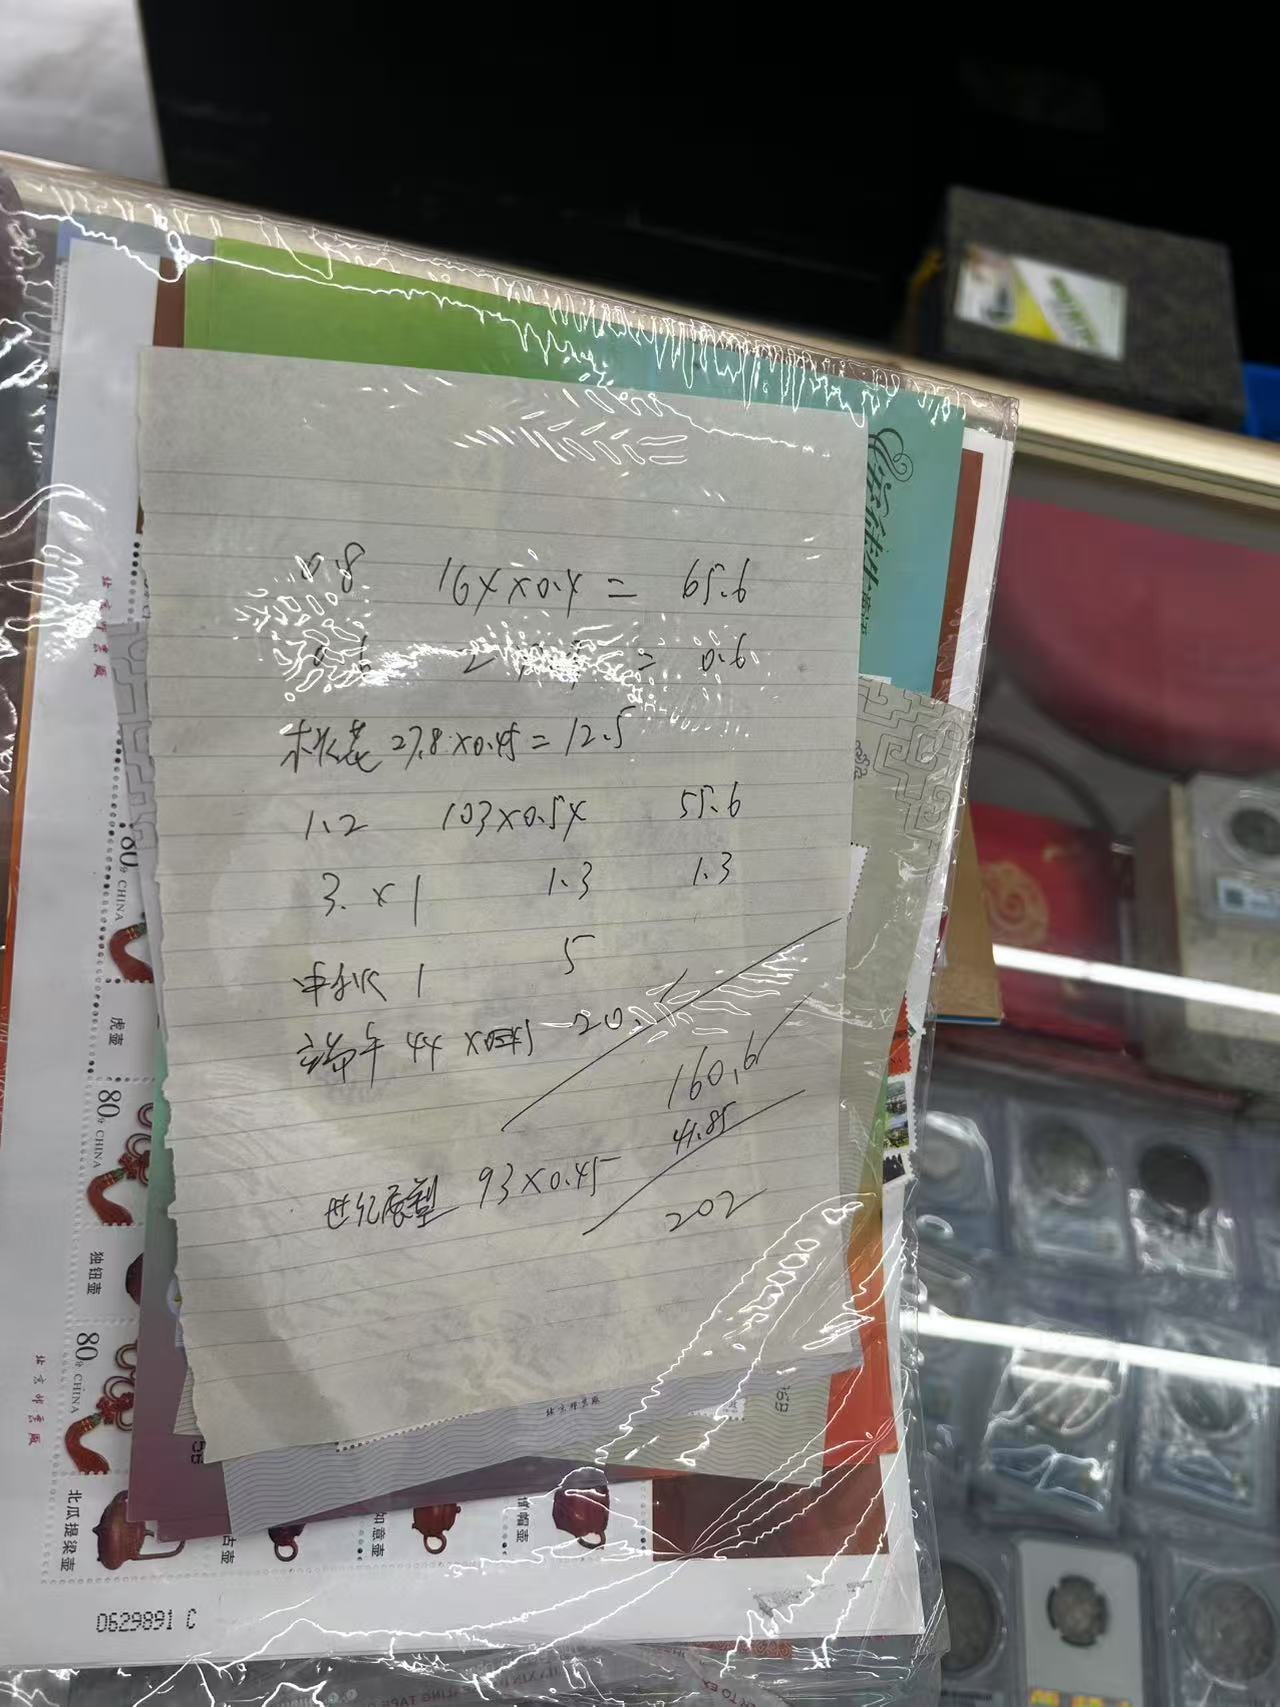 0.8 164×0.4= 65.6
2 = 0.6
27.8×0.45=12.5
1.2 103×0.54 55.6
3. ×1 1.3 1.3
中秋 1 5
端午 44 × 20.
160.6
41.85
世纪 93×0.45
202
北京邮票厂
80分 CHINA
虎壶
80分 CHINA
独钮壶
80分 CHINA
北京邮票厂
北瓜提梁壶
古壶
如意壶
僧帽壶
北京邮票厂
0629891 C